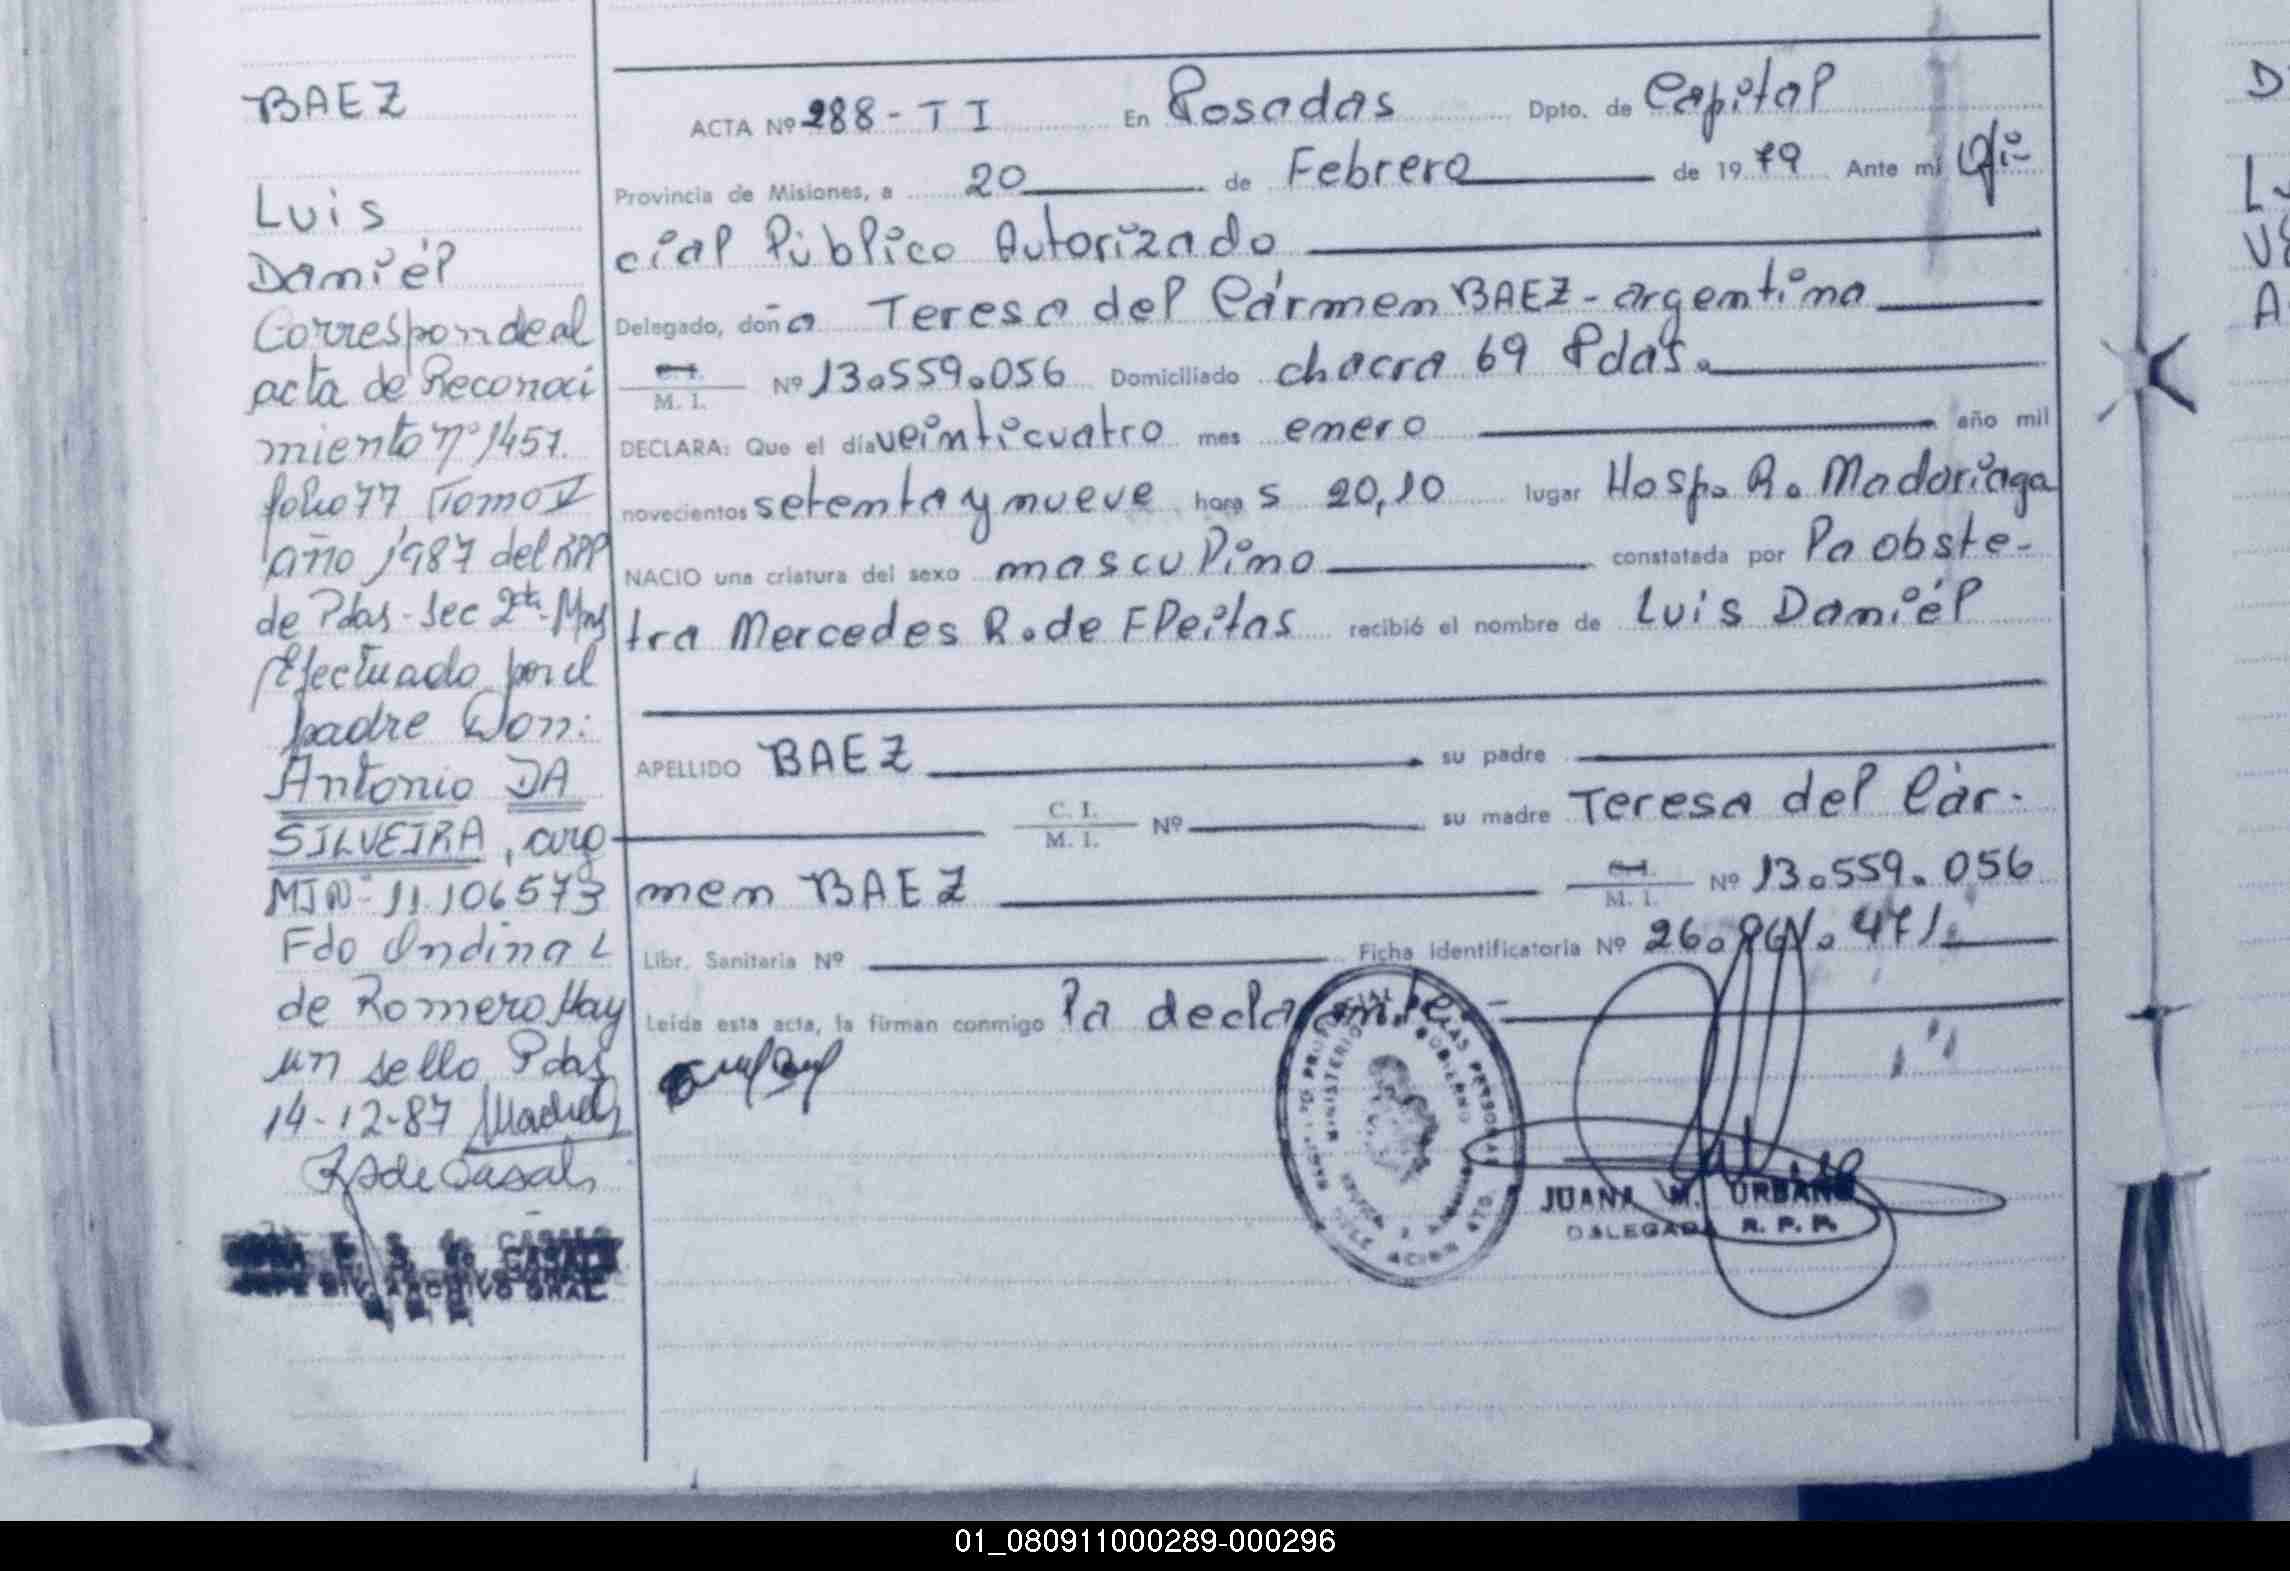 BAEZ
Luis
Daniél
Corresponde al
acta de Reconoci
miento nº 1457.
folio 77 Tomo V
año 1987 del RPP
de Pdas - Sec 2da - Mns
Efectuado por el
padre Don:
Antonio DA
SILVEIRA, arg
MIN= 11.106573
Fdo Ondina L
de Romero Hay
un sello Pdas
14-12-87
CASALS
DIV. ARCHIVO GRAL
ACTA Nº 288 - T I En Posadas Dpto. de Capital
Provincia de Misiones, a 20 de Febrero de 1979 Ante mí Ofi-
cial Público Autorizado
Delegado, doña Teresa del Cármen BAEZ - argentina
C. I.
M. I. Nº 13.559.056 Domiciliado chacra 69 Pdas.
DECLARA: Que el día veinticuatro mes enero año mil
novecientos setenta y nueve hora s 20,10 lugar Hosp. R. Madariaga
NACIO una criatura del sexo masculino constatada por la obste-
tra Mercedes R. de FLeitas recibió el nombre de Luis Daniél
APELLIDO BAEZ su padre
C. I.
M. I. Nº su madre Teresa del Cár-
men BAEZ M. I. Nº 13.559.056
Libr. Sanitaria Nº Ficha identificatoria Nº 26. 471
Leída esta acta, la firman conmigo la declarante.-
MINISTERIO GOBIERNO
LAS PERSONAS
JUANA M. URBANO
DELEGADA R. P. P.
D
L
A
01_080911000289-000296